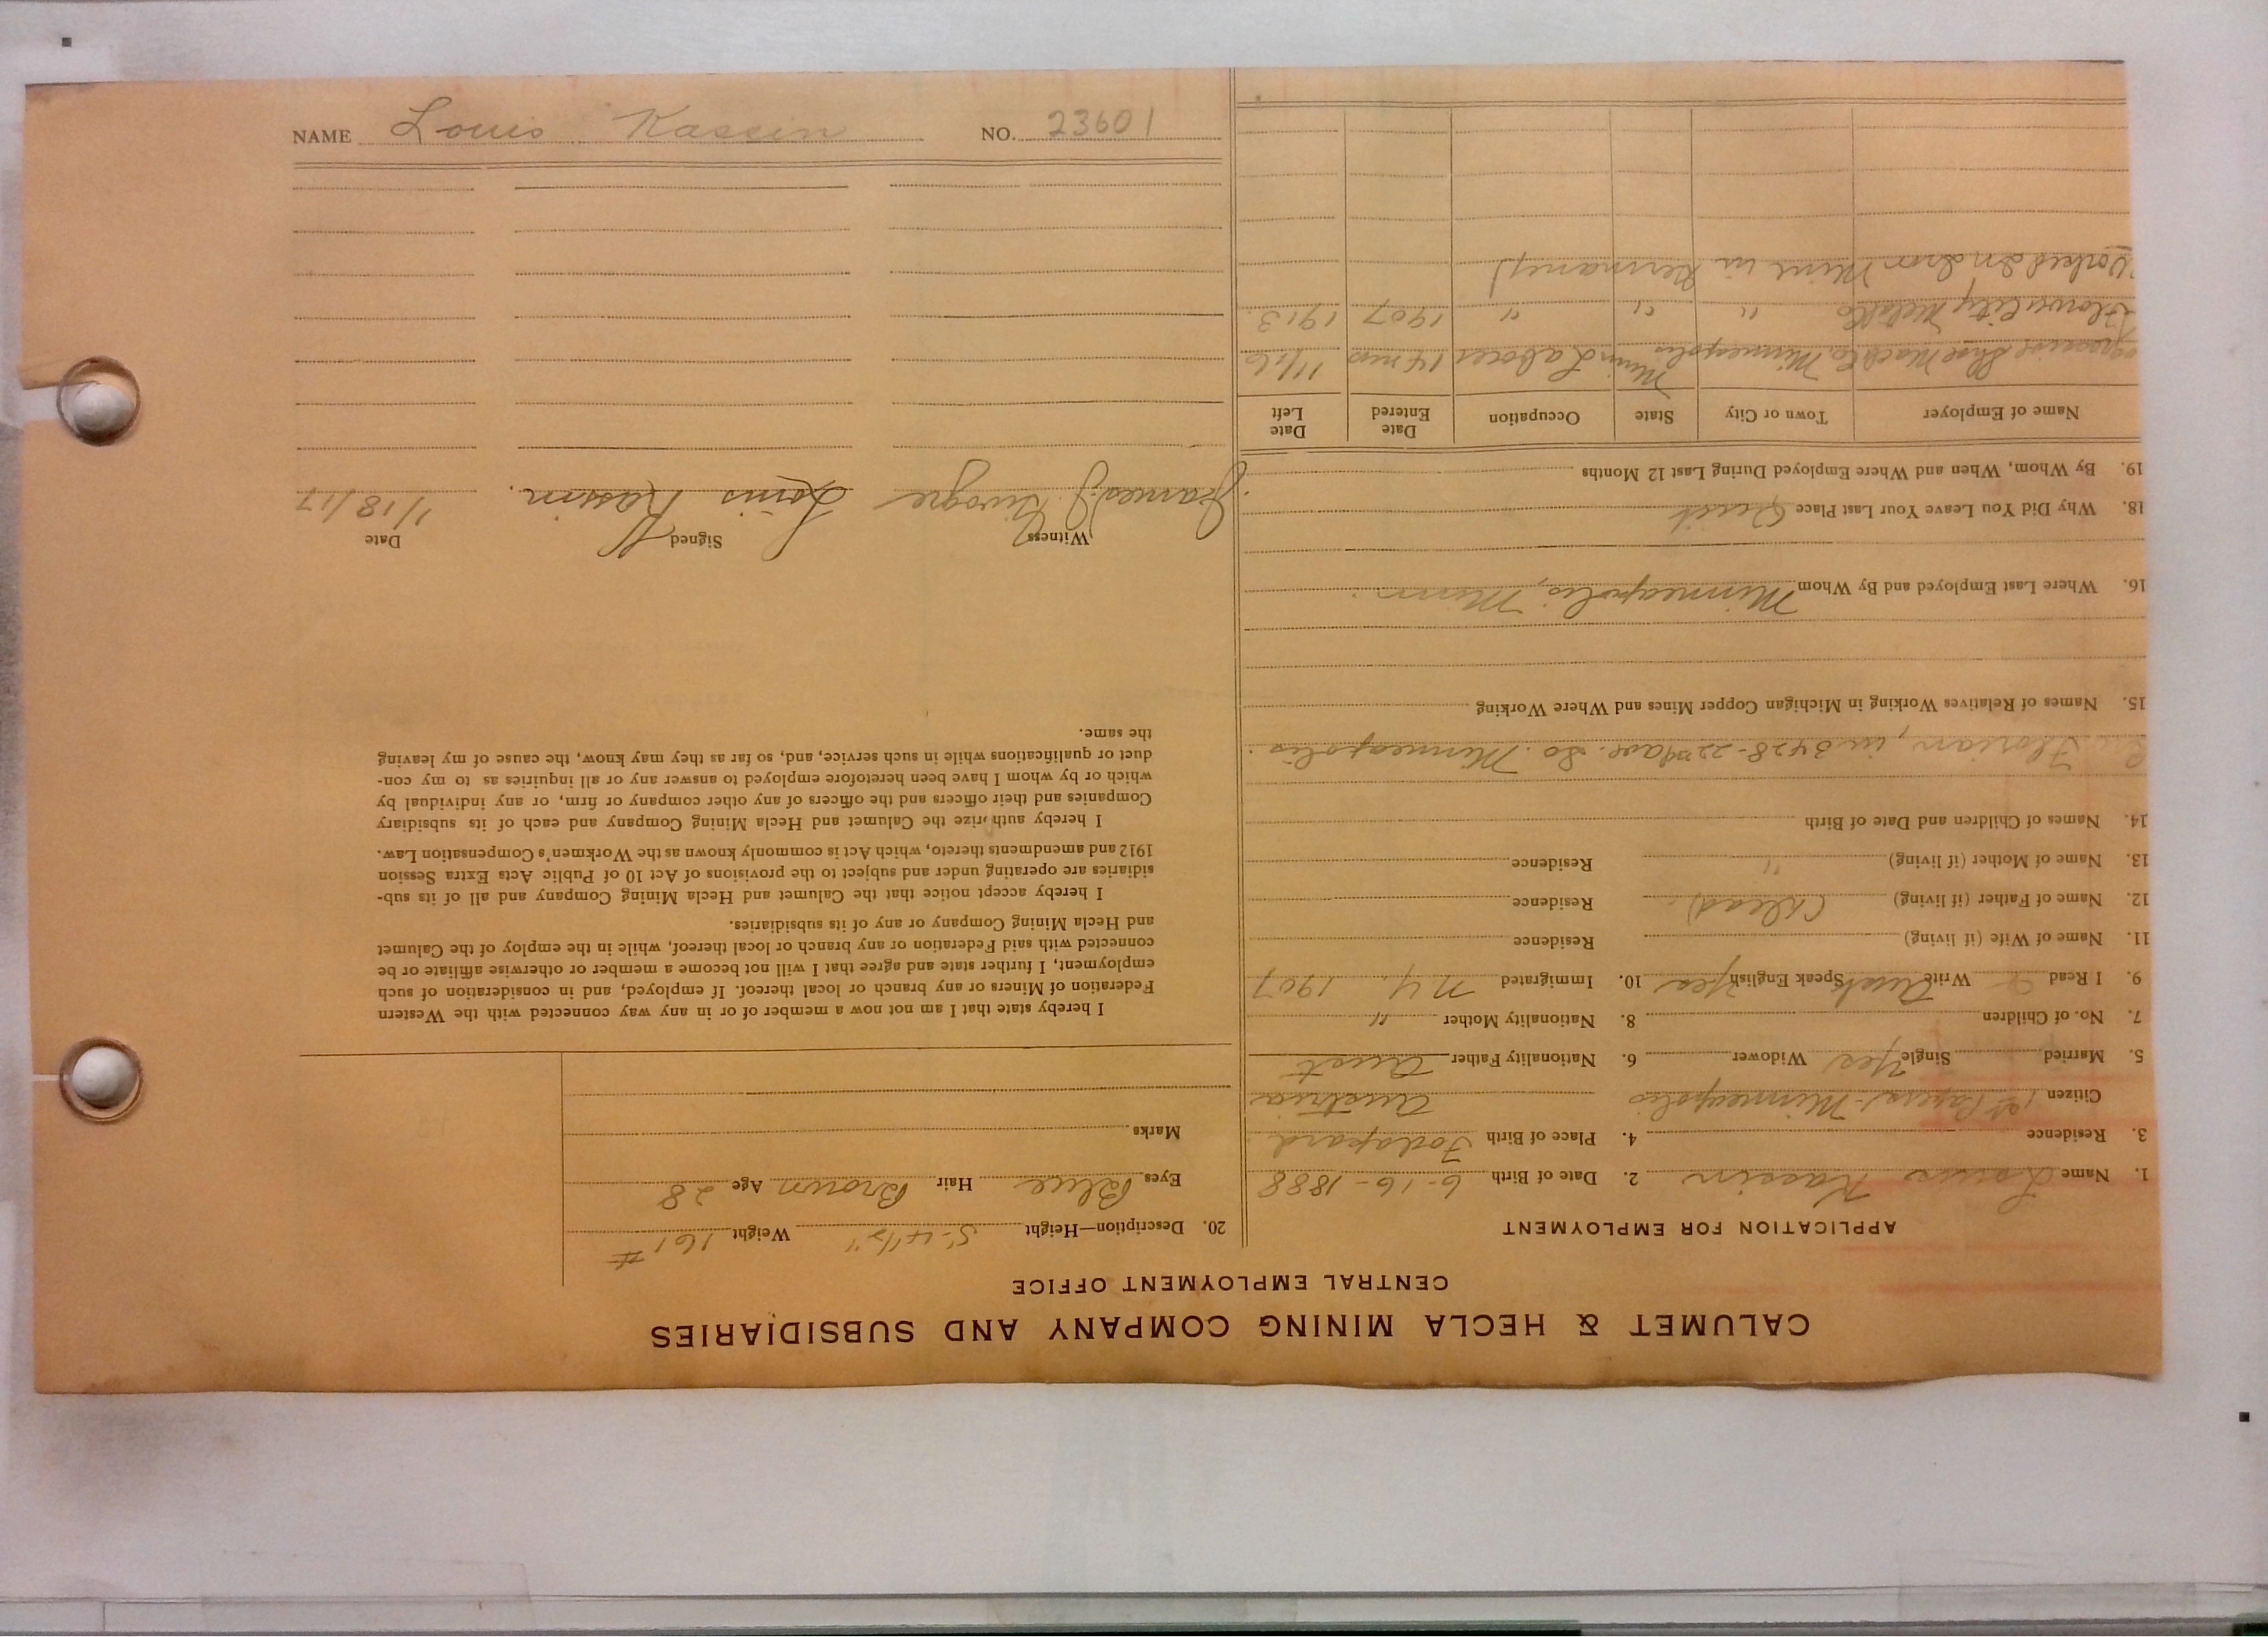 NAME Louis Kassin NO. 23601
CALUMET & HECLA MINING COMPANY AND SUBSIDIARIES
CENTRAL EMPLOYMENT OFFICE
APPLICATION FOR EMPLOYMENT
1. Name Louis Kassin 2. Date of Birth 6-16-1888
3. Residence 4. Place of Birth
Citizen 1st Papers-Minneapolis Austria
5. Married Single Yes Widower 6. Nationality Father Aust
7. No. of Children 8. Nationality Mother "
9. I Read Write Aust Speak English Yes 10. Immigrated N.Y. 1907
11. Name of Wife (if living) Residence
12. Name of Father (if living) (Dead) Residence
13. Name of Mother (if living) " Residence
14. Names of Children and Date of Birth
Florian, in 3428-22nd ave. So. Minneapolis.
15. Names of Relatives Working in Michigan Copper Mines and Where Working
16. Where Last Employed and By Whom Minneapolis, Minn.
18. Why Did You Leave Your Last Place Quit
19. By Whom, When and Where Employed During Last 12 Months
Name of Employer Town or City State Occupation Date Entered Date Left
Shoe Mach Co. Minneapolis Minn Laborer 14 mos 11/16
City " " " 1907 1913.
Worked in Iron Mine in Germany)
20. Description—Height 5'-4½" Weight 161#
Eyes Blue Hair Brown Age 28
Marks
I hereby state that I am not now a member of or in any way connected with the Western
Federation of Miners or any branch or local thereof. If employed, and in consideration of such
employment, I further state and agree that I will not become a member or otherwise affiliate or be
connected with said Federation or any branch or local thereof, while in the employ of the Calumet
and Hecla Mining Company or any of its subsidiaries.
I hereby accept notice that the Calumet and Hecla Mining Company and all of its sub-
sidiaries are operating under and subject to the provisions of Act 10 of Public Acts Extra Session
1912 and amendments thereto, which Act is commonly known as the Workmen's Compensation Law.
I hereby authorize the Calumet and Hecla Mining Company and each of its subsidiary
Companies and their officers and the officers of any other company or firm, or any individual by
which or by whom I have been heretofore employed to answer any or all inquiries as to my con-
duct or qualifications while in such service, and, so far as they may know, the cause of my leaving
the same.
Witness Signed Date
James J. Louis Kassin. 1/18/17